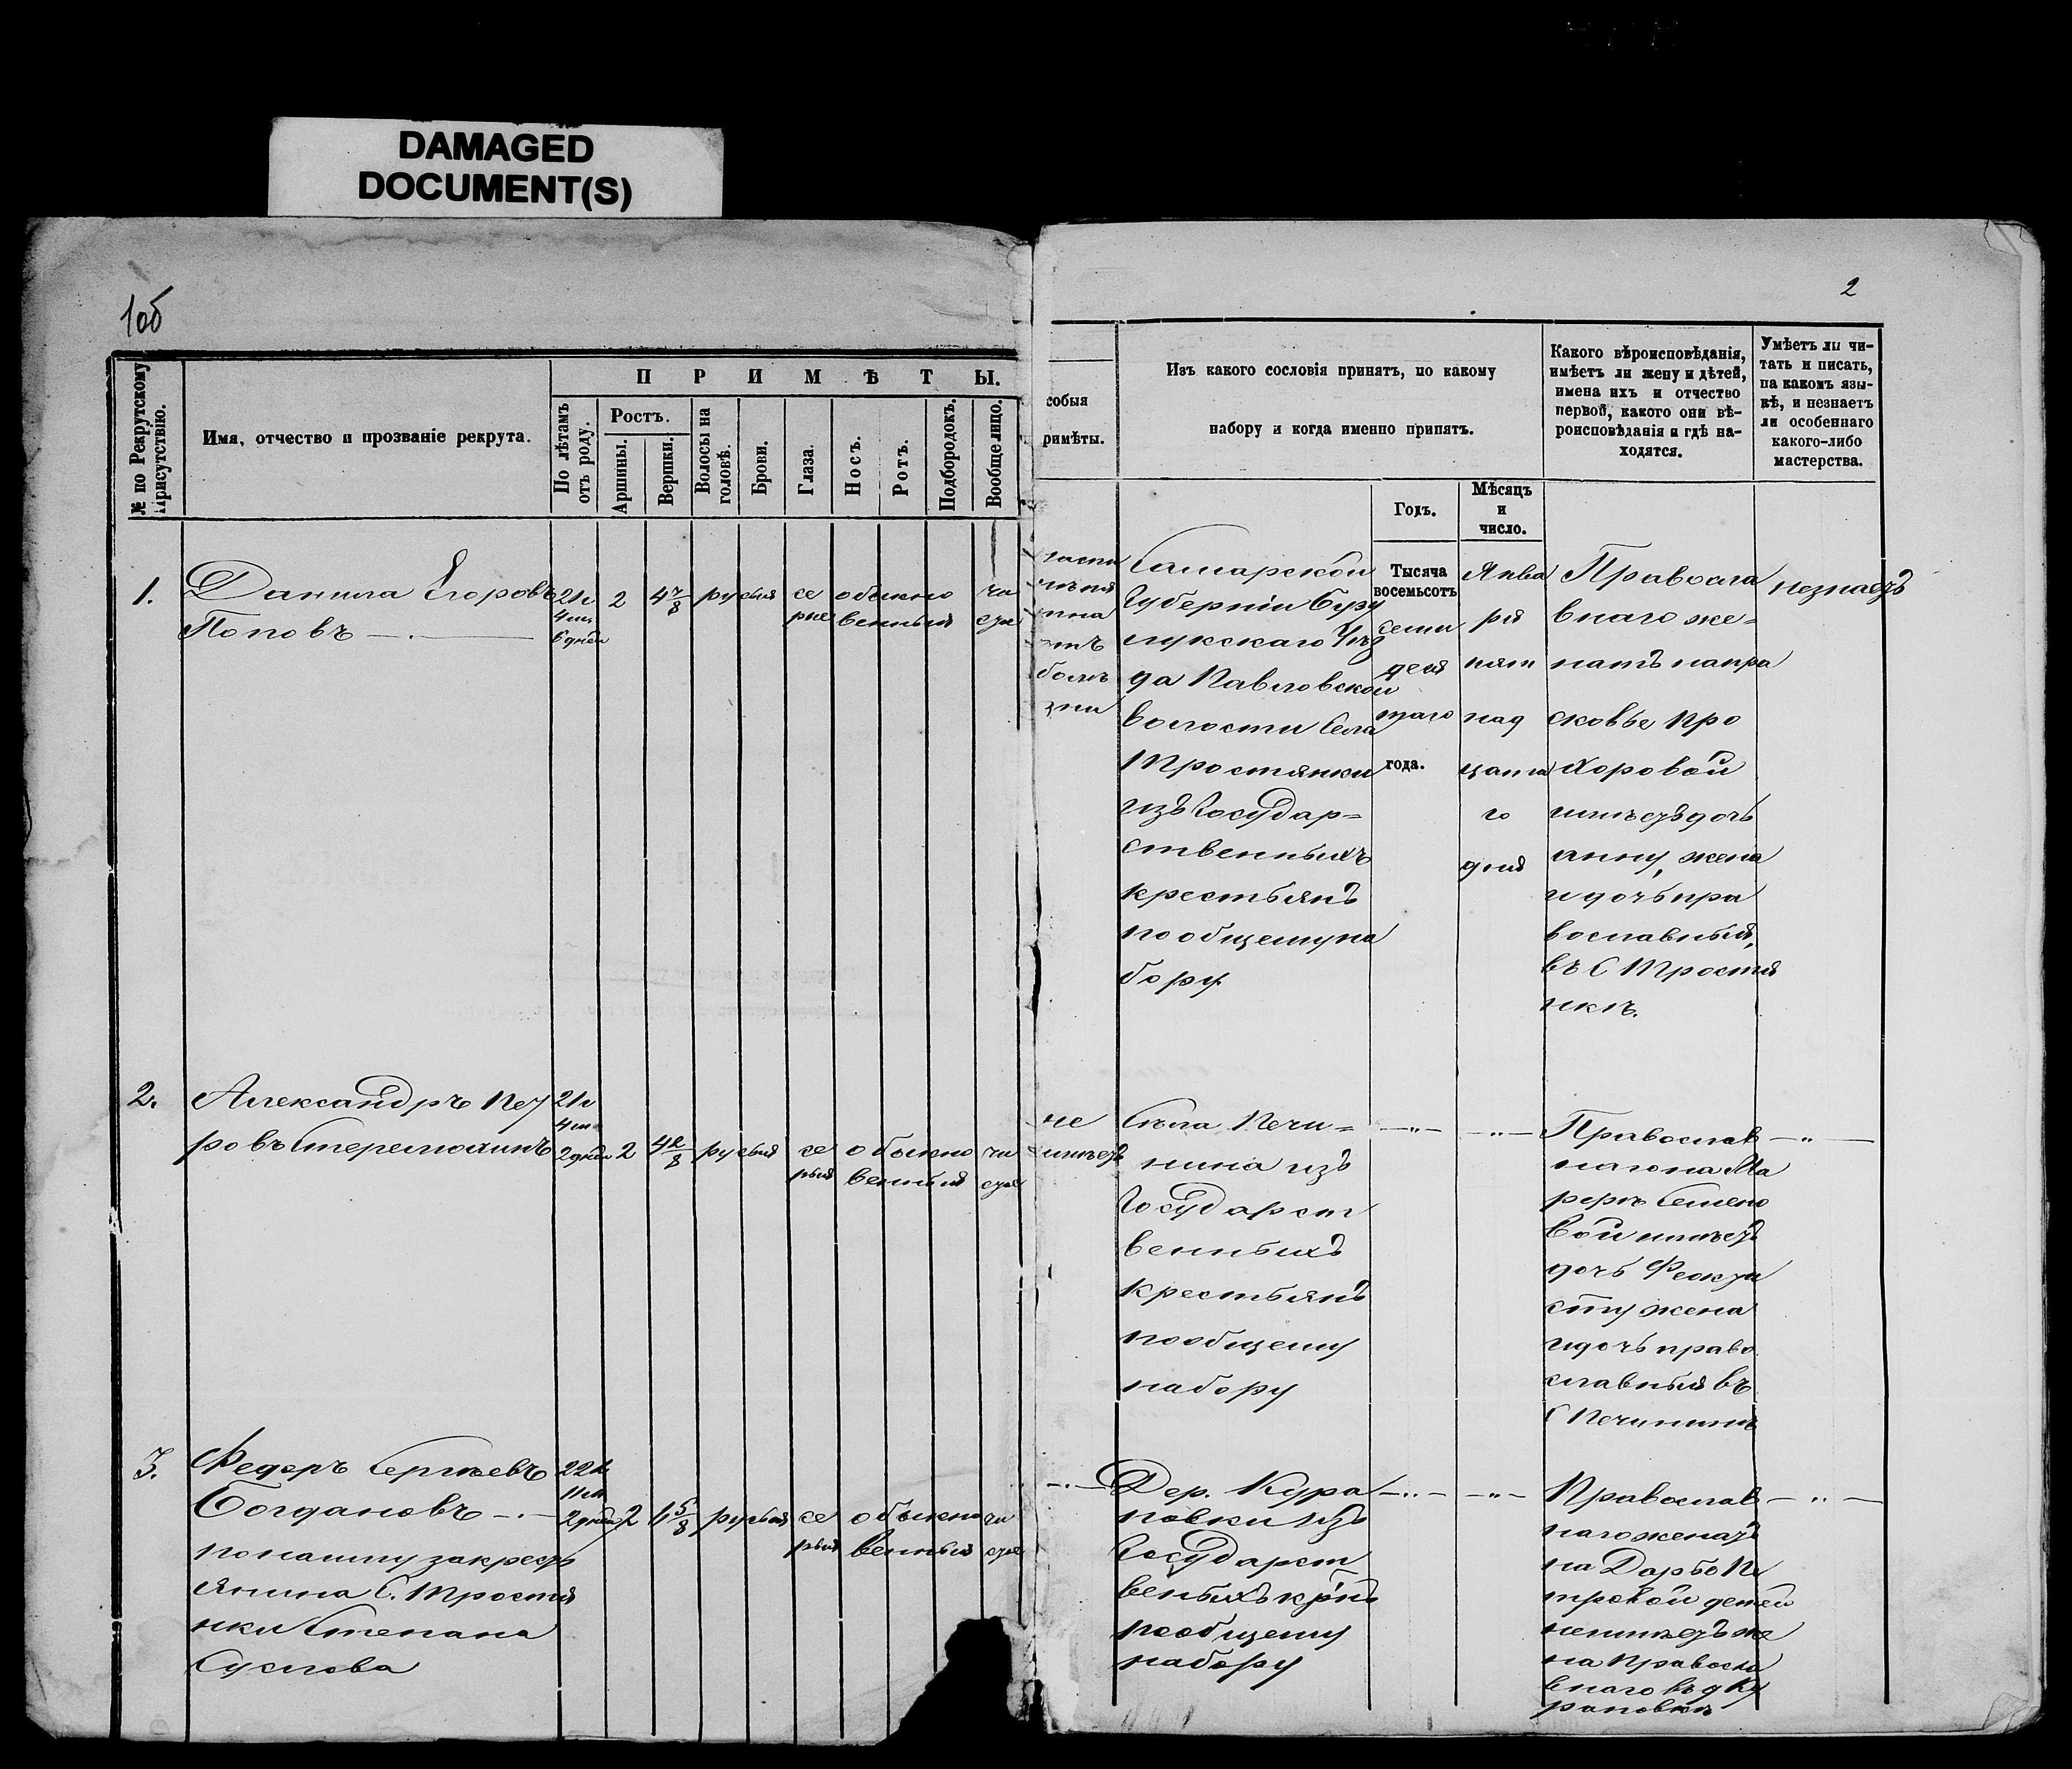 DAMAGED
DOCUMENT(S)
1об
2
№ по Рекрутскому
Присутствію.
Имя, отчество и прозваніе рекрута.
П Р И М Ѣ Т Ы.
По лѣтамъ
отъ роду.
Ростъ.
Аршины.
Вершки.
Волосы на
головѣ.
Брови.
Глаза.
Носъ.
Ротъ.
Подбородокъ.
Вообще лицо.
собыя
римѣты.
Изъ какого сословія принятъ, по какому
набору и когда именно принятъ.
Годъ.
Мѣсяцъ
и
число.
Какого вѣроисповѣданія,
имѣетъ ли жену и дѣтей,
имена ихъ и отчество
первой, какого они вѣ-
роисповѣданія и гдѣ на-
ходятся.
Умѣетъ ли чи-
тать и писать,
на какомъ язы-
кѣ, и незнаетъ
ли особеннаго
какого-либо
мастерства.
1.
Данила Егоровъ
Поповъ
21л
4м
6 дней
2
4 7/8
русыя
се
рые
обыкно
венный
чи
стое
Самарской
Губерніи Бузу
лукскаго Уѣз
да Павловской
волости Села
Тростянки
изъ Государ=
ственныхъ
крестьянъ
по общему на
бору
Тысяча
восемьсотъ
семи
деся
таго
года.
Янва
ря
пят
над
цата
го
дня
Правосла
внаго же=
натъ на Пра
сковье Про
хоровой
имѣетъ дочь
анну, жена
и дочь пра
вославныя,
въ С Тростя
нкѣ.
незнаетъ
2.
Александръ Пет
ровъ Стеремохинъ
21л
4м
2 дней
2
русыя
се
рыя
обыкно
венныя
чи
стое
не
имѣетъ
Села Печи=
нина изъ
Государст
венныхъ
крестьянъ
по общему
набору
Православ
наго на Ма
вой имѣетъ
дочь Феокти
сту жена
и дочь право
славныя въ
С Печининѣ
3.
Федоръ Сергѣевъ
Богдановъ
по найму за крест
янина С. Тростя
нки Степана
Суслова
22л
11м
2 дней
2
русыя
се
рыя
обыкно
венныя
чи
стое
Дер. Кура
повки изъ
Государст
веныхъ крнъ
по общему
набору
Православ
наго женатъ
на Дарье Пе
тровой детей
неимѣетъ же
на Правосла
внаго въ д Ку
раповкѣ